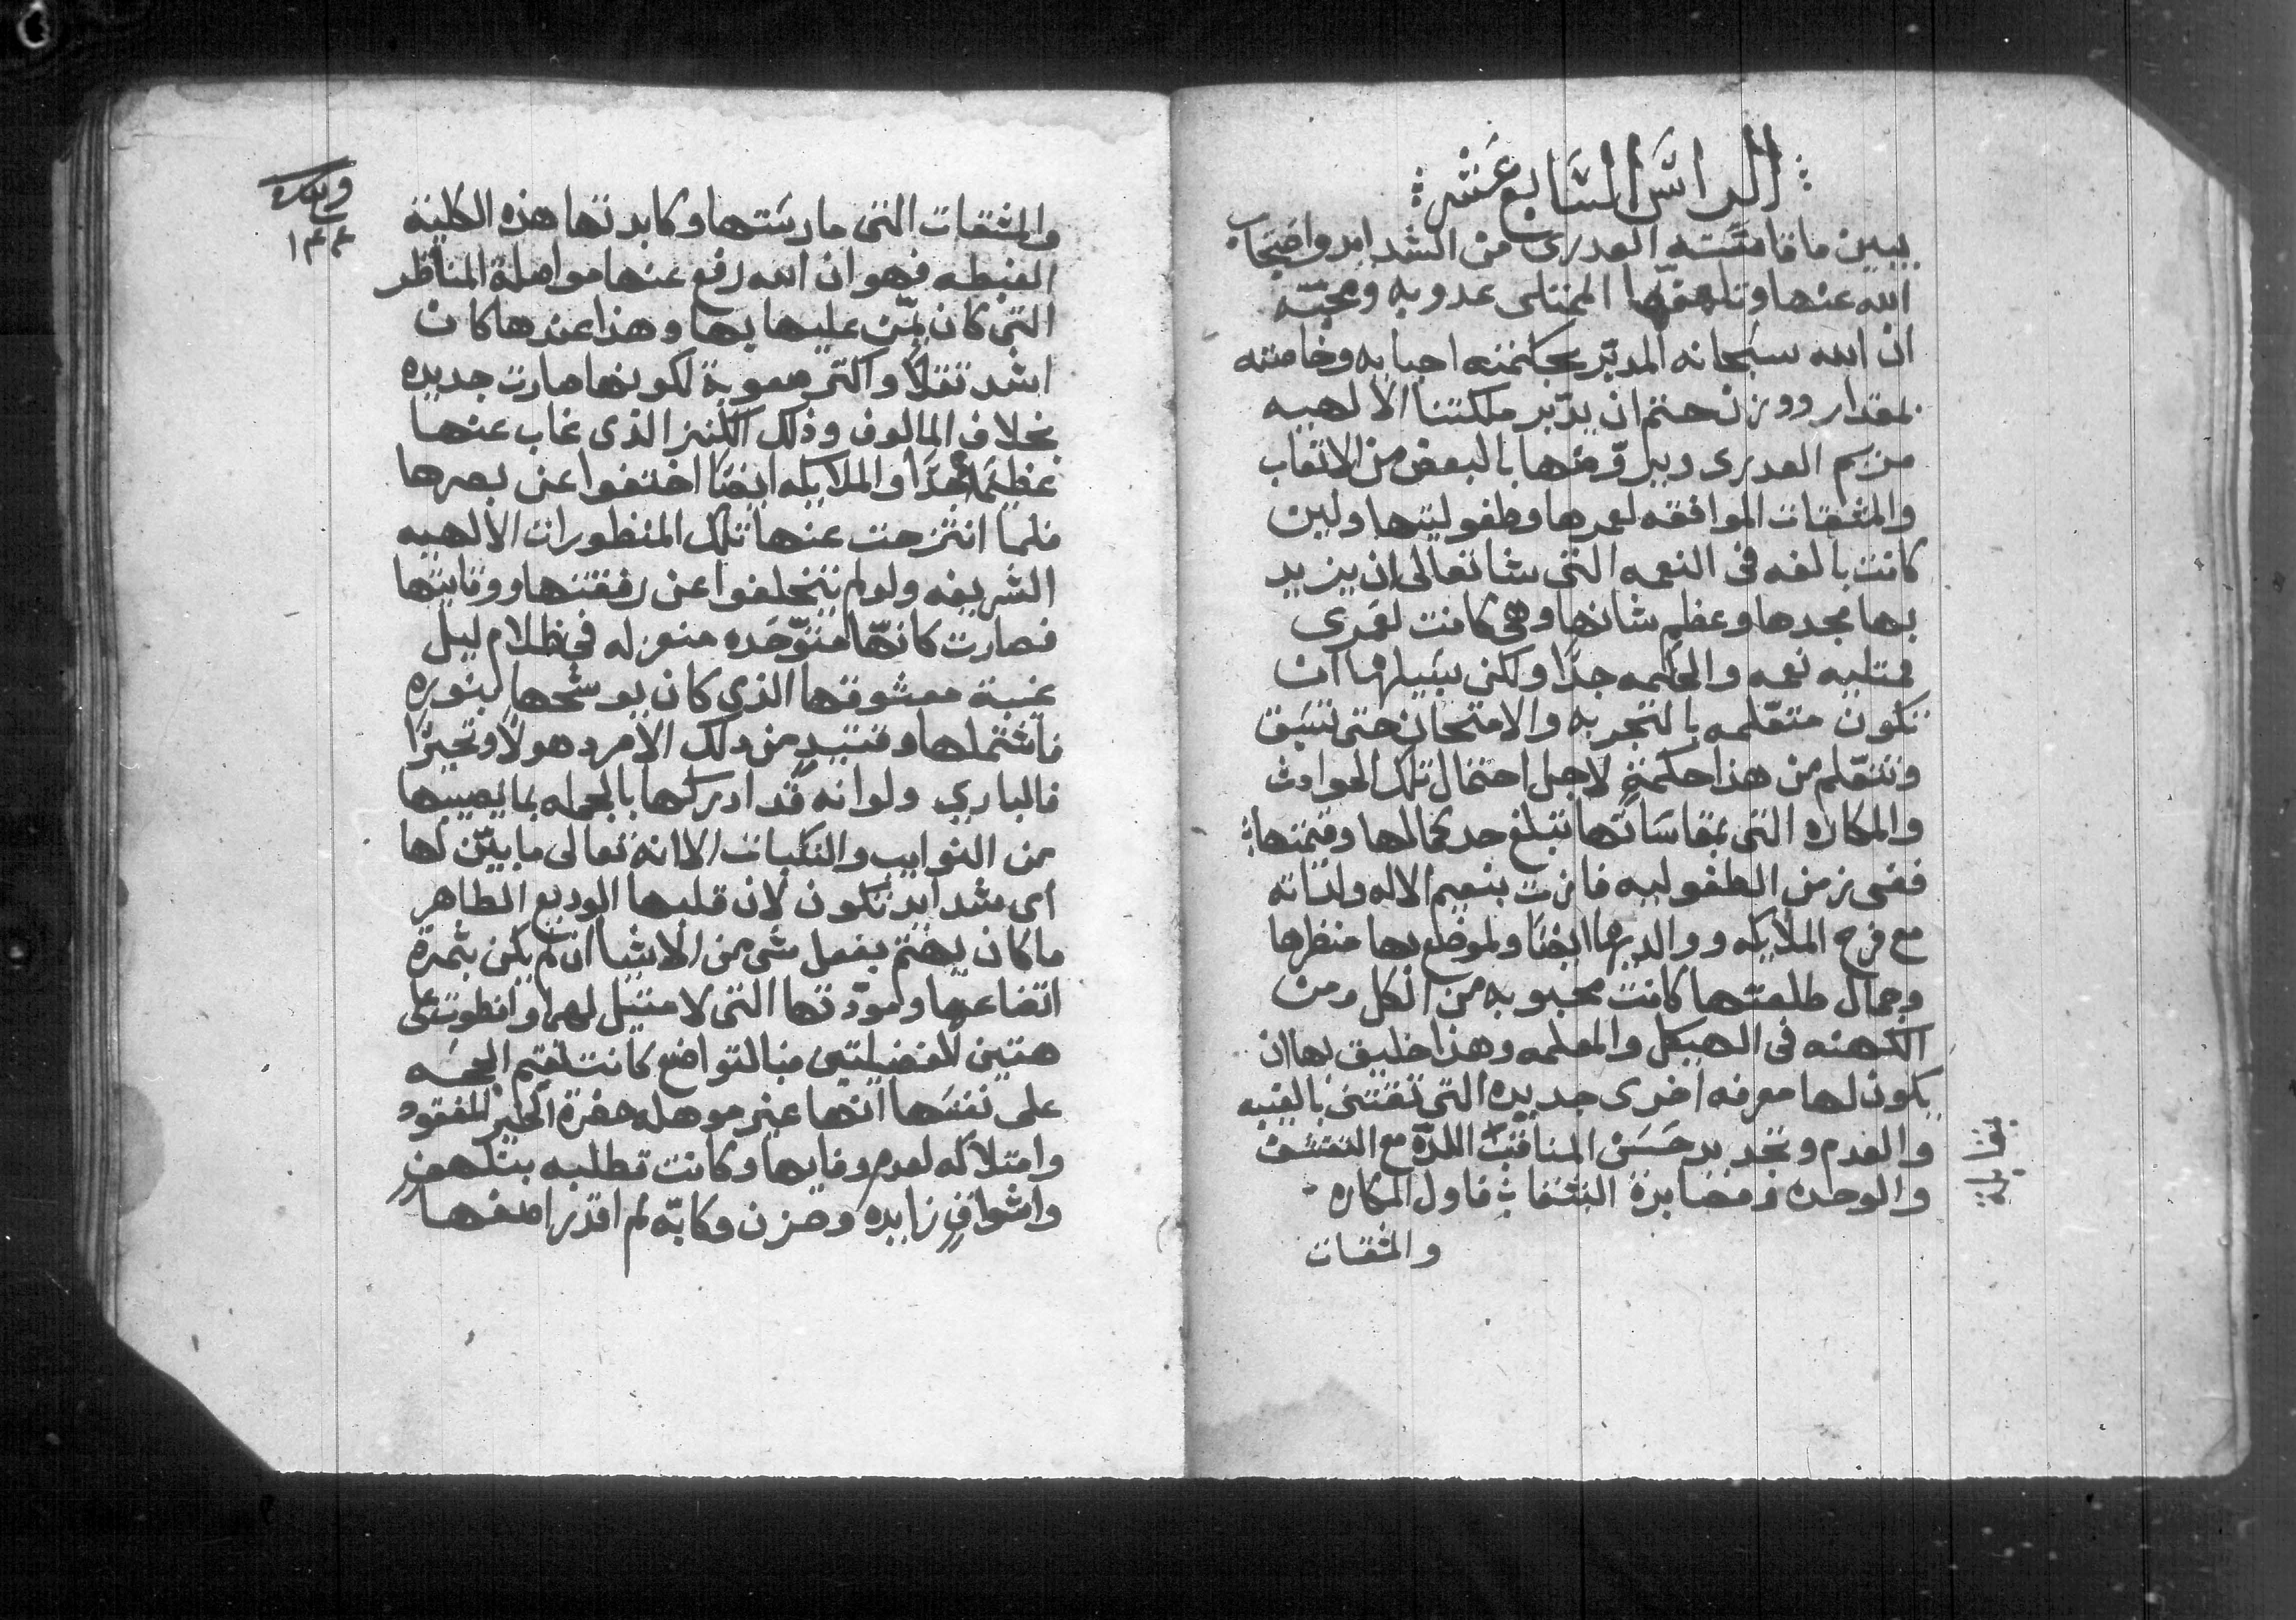 الراس السابع عشر
يبين ما قاسَته العدرى من الشدايد واحتجاب
الله عنها وتلهفها الممتلى عدوبه ومحبّه
ان الله سبحانه المدبّر بحكمته احبابه وخاصته
بمقدار ووزن حتم ان يدّبر ملكتنا الالهيه
مريم العدرى ويروّضها بالبعض من الاتعاب
والمشقات الموافقه لعمرها وطفوليتها ولين
كانت بالغه فى النعمه التى شا تعالى ان يزيد
بها مجدها وعظم شانها وهى كانت لعمرى
ممتليه نعمه والحكمه جدًا ولكن سبيلها ان
تكون متعّلمه بالتجربه والامتحان حتى تسبق
وتتعّلم من هذا حكمةٍ لاجل احتمال تلك الحوادث
والمكاره التى بمقاساتها تبلغ حد كمالها وقمتها
ففى زمن الطفوليه فازت بنعيم الاله ولداته
مع فرح الملايكه ووالديها ايضًا ولموضع بها منظرها
وجمال طلعتها كانت محبوبه من الكل ومن
الكهنه فى الهيكل والمعلمه وهذا خليق بها ان
يكون لها معرفه اخرى جديده التى تقتنى بالغيبه
والعدم وتجديد حَسَن المناقب اللدّه مع التقشف
والوحده ومضابرة الشقا فاول المكاره
والمشقات
وبكره
١٤٤
والمشقات التى مارستها وكابدتها هذه الكلية
الغبطه فهو ان الله رفع عنها مواصلة المناظر
التى كان يمّن عليها بها وهذا عندها كان
اشد تقلاً واكتر صعوبة لكونها صارت جديده
بخلاف المالوف وذلك الكنز الذى غاب عنها
عظيمًا جدًا والملايكه ايضًا اختفوا عن بصرها
فلما انتزحت عنها تلك المنظورات الالهيه
الشريفه ولو لم يتخلفوا عن رفقتها ووقايتها
فصارت كانهّا متوّحده منعزله فى ظلام ليل
غيبة معشوقها الذى كان يوشحها بنوره
فاشتملها وقتيدٍ من دلك الامر دهولاً وتحيرًا
فالبارى ولو انه قد ادركها بالجمله بما يصيبها
من النوايب والنكبات الا انه تعالى ما بيّن لها
اى شدايد تكون لان قلبها الوديع الطاهر
ما كان يهتم بفعل شى من الاشيا ان لم يكن بثمرة
اتضاعها ومودّتها التى لا مثيل لهما وانطوت على
هتين الفضيلتين فبالتواضع كانت تقيم الحجه
على نفسَها انها غير موهله حضرة الخير المفقود
وامتلاكه لعدم وفايها وكانت تطلبه بتلهف
واشواقٍ زايده وحزن وكابّه لم اقدر اصفها